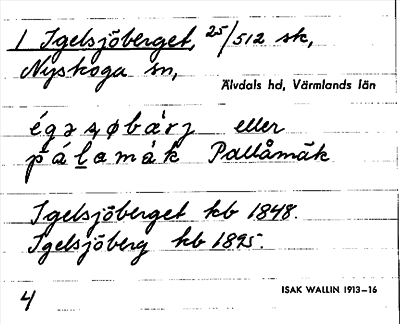 1 Igelsjöberget, 25/512 sk,
Nyskoga sn,
Älvdals hd, Värmlands län
eller
Pallåmäk
Igelsjöberget kb 1848.
Igelsjöberg kb 1895.
4
ISAK WALLIN 1913–16